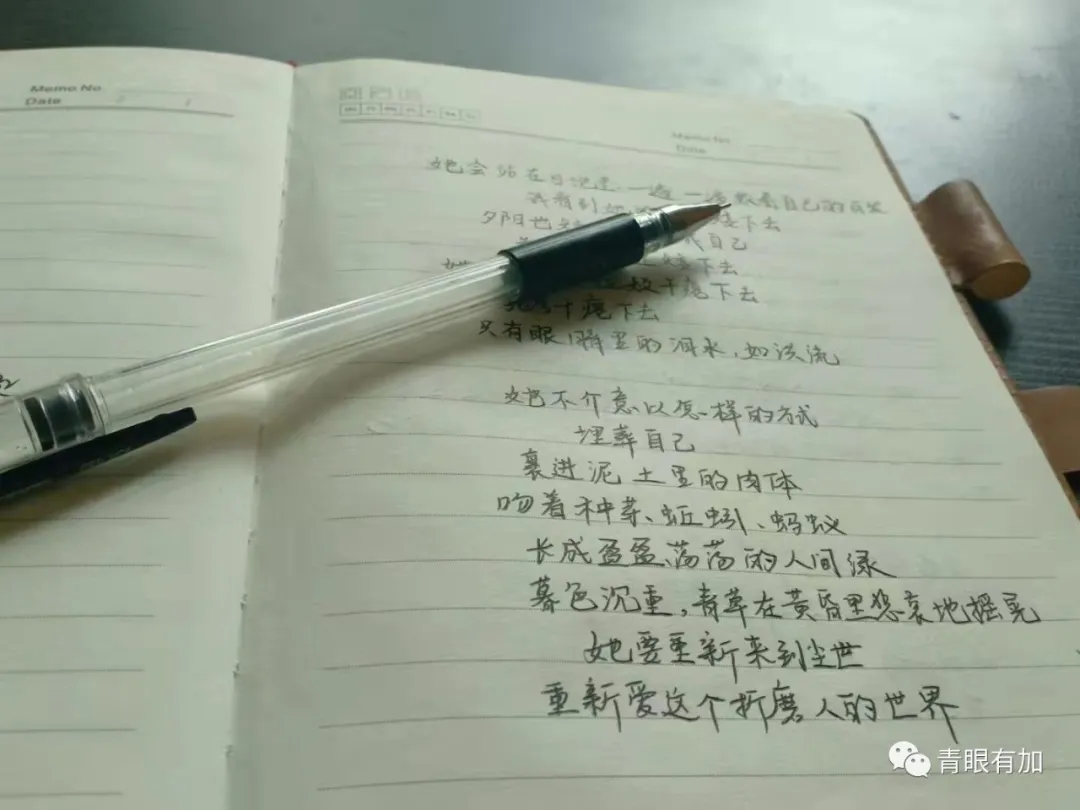 Memo No
Date
Memo No
Date
她会站在日记里,一遍一遍数着自己的
我看到她 下去
夕阳也 自己
她 下去
干瘪下去
干瘪下去
只有眼睛里的泪水,如河流
她不介意以怎样的方式
埋葬自己
裹进泥土里的肉体
吻着种芽、蚯蚓、蚂蚁
长成盈盈荡荡的人间绿
暮色沉重,青草在黄昏里悲哀地摇晃
她要重新来到尘世
重新爱这个折磨人的世界
青眼有加